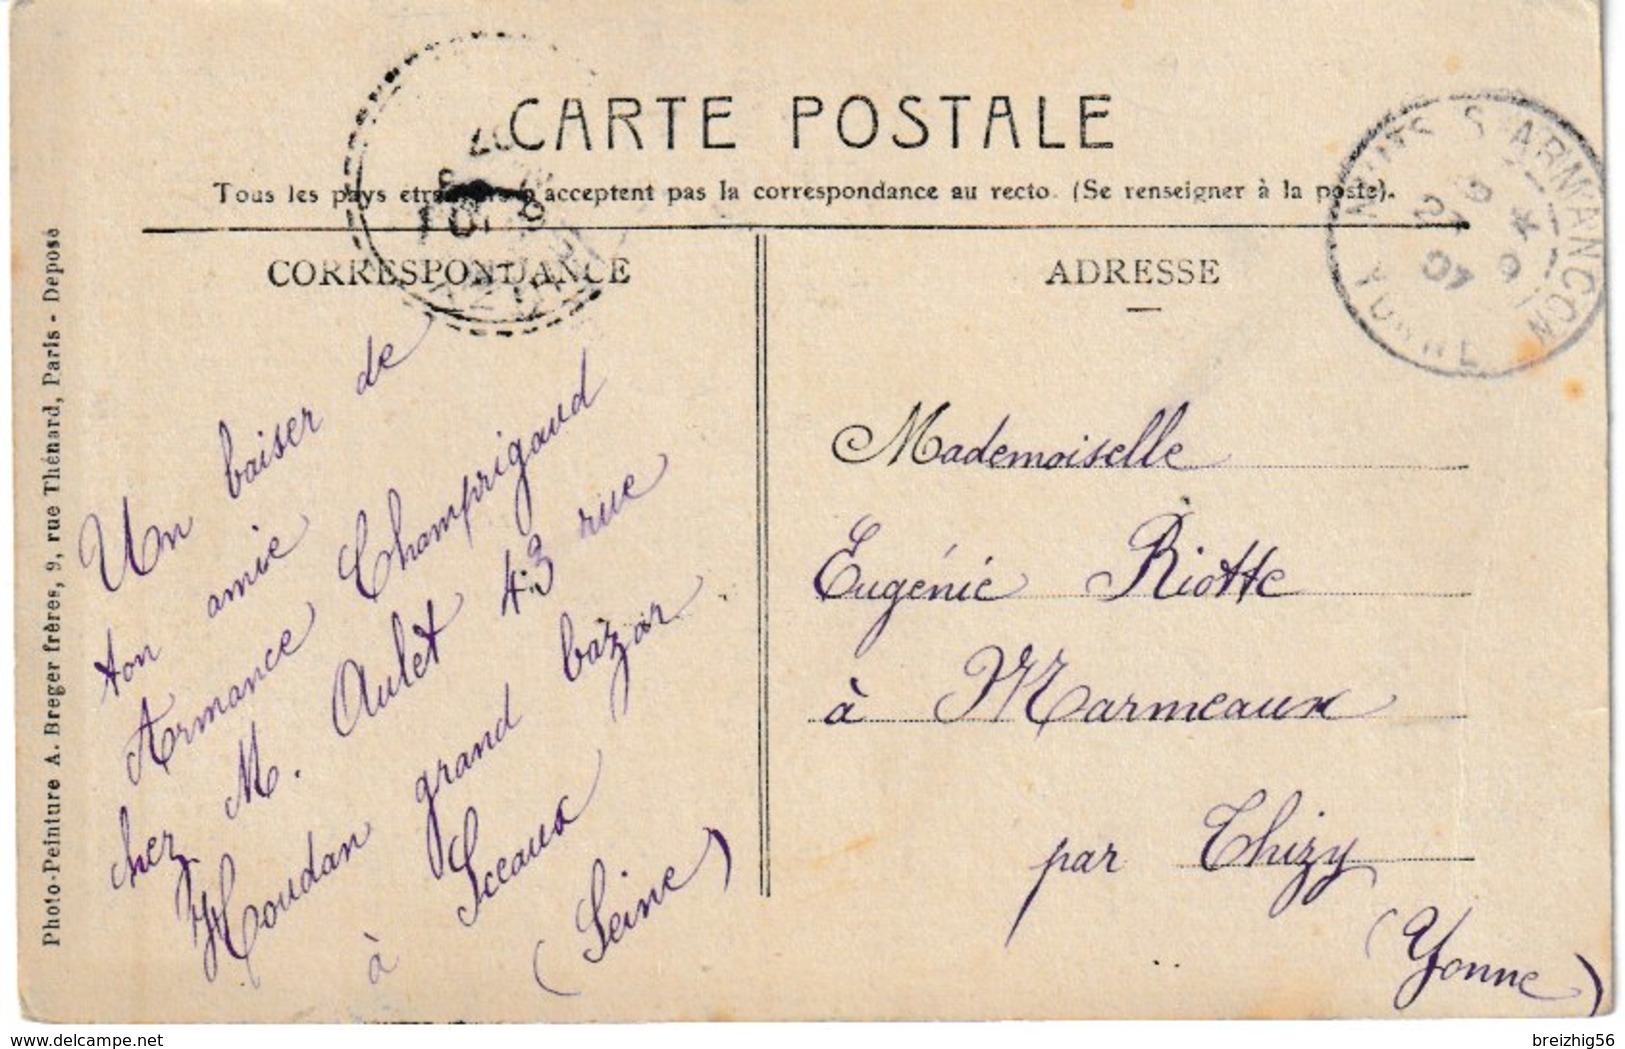 CARTE POSTALE
Tous les pays étrangers n'acceptent pas la correspondance au recto. (Se renseigner à la poste).
CORRESPONDANCE
ADRESSE
NUITS S ARMANCON
27
07
YONNE
Un baiser de
ton amie
Armance Champrigaud
chez M. Aulet 43 rue
Houdan grand bazar
à Sceaux
(Seine)
Mademoiselle
Eugénie Riotte
à Marmeaux
par Thizy
(Yonne)
Photo-Peinture A. Breger frères, 9, rue Thénard, Paris - Déposé
delcampe.net
breizhig56